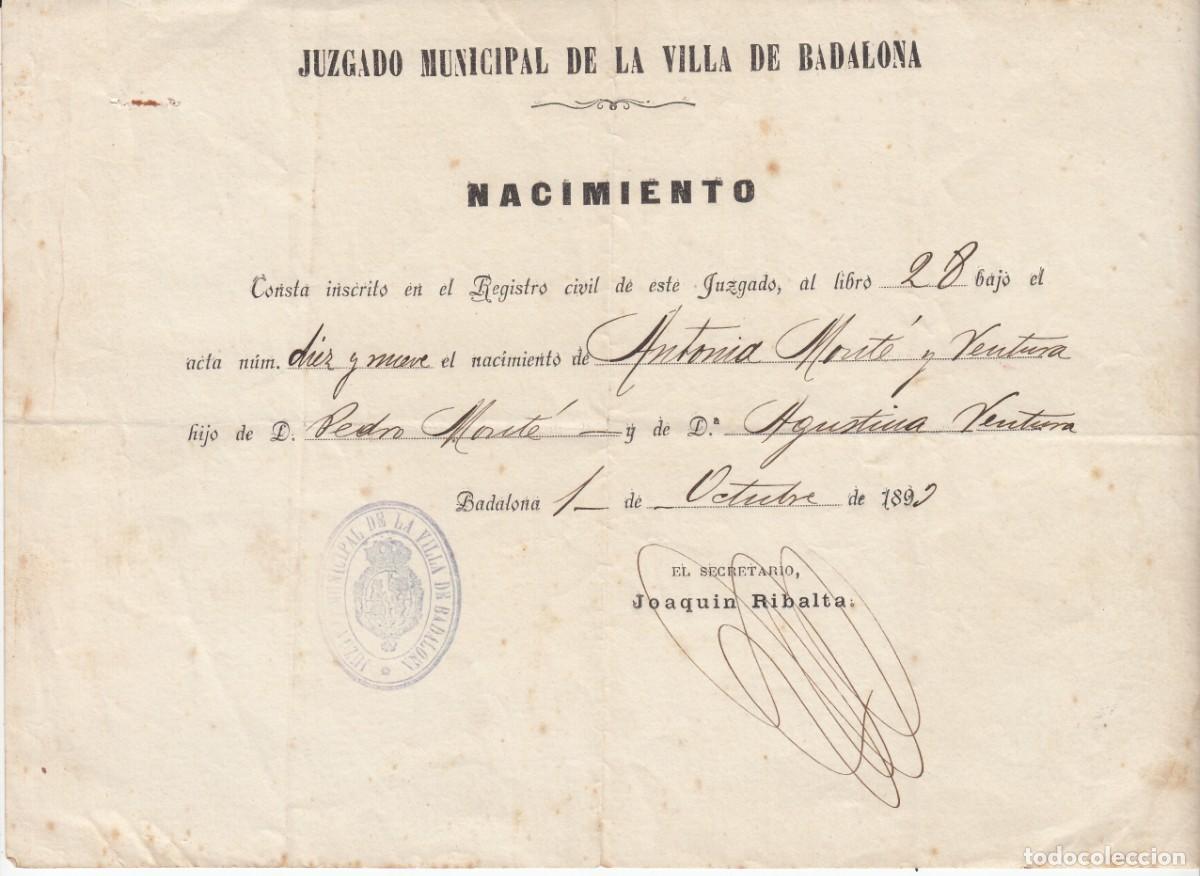 JUZGADO MUNICIPAL DE LA VILLA DE BADALONA
NACIMIENTO
Consta inscrito en el Registro civil de este Juzgado, al libro 28 bajo el
acta núm. diez y nueve el nacimiento de Antonia Monté y Ventura
hijo de D. Pedro Monté — y de D.ª Agustina Ventura
Badalona 1 de Octubre de 189
EL SECRETARIO,
Joaquin Ribalta.
MUNICIPAL DE LA VILLA DE BADALONA
todocoleccion